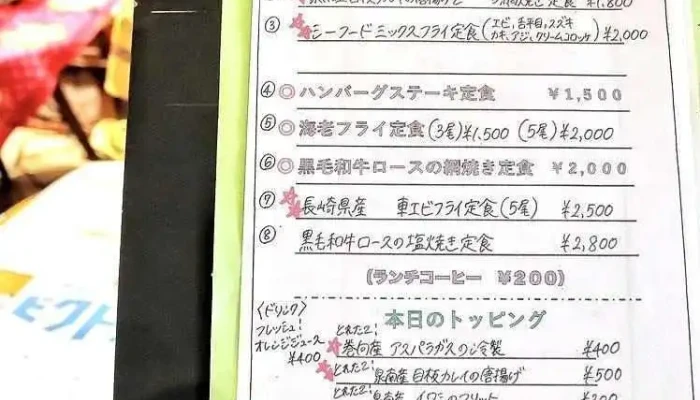 焼き定食 ¥1,800
③ シーフードミックスフライ定食(エビ,舌平目,スズキ
カキ,アジ,クリームコロッケ) ¥2,000
④◎ハンバーグステーキ定食 ¥1,500
⑤◎海老フライ定食(3尾)¥1.500 (5尾)¥2,000
⑥◎黒毛和牛ロースの網焼き定食 ¥2,000
⑦ 長崎県産 車エビフライ定食(5尾) ¥2,500
⑧ 黒毛和牛ロースの塩焼き定食 ¥2,800
(ランチコーヒー ¥200)
〈ドリンク〉
フレッシュ!
オレンジジュース
¥400
本日のトッピング
とれた2!
巻向産 アスパラガスの冷製 ¥400
とれた2!
泉南産 目板カレイの唐揚げ ¥500
とれた2!
泉南産 イワシのフリット
ビクト